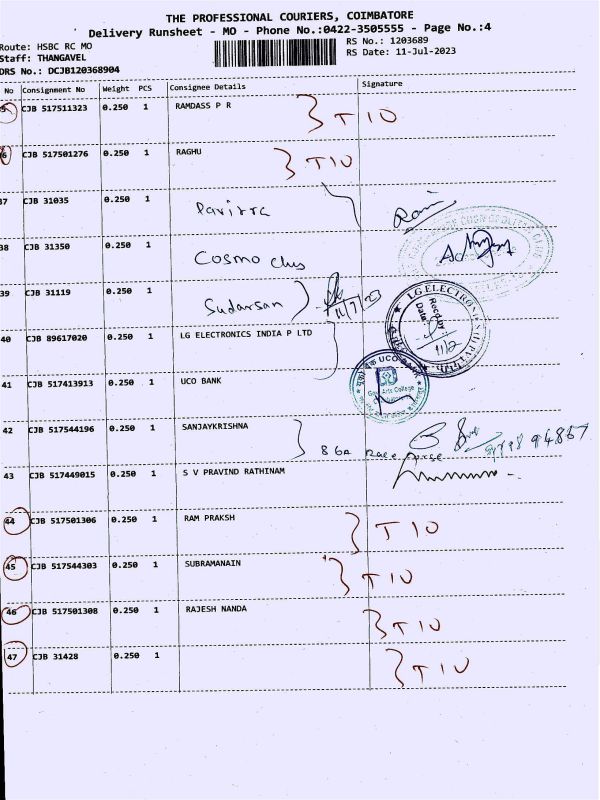 THE PROFESSIONAL COURIERS, COIMBATORE
Delivery Runsheet - MO - Phone No.:0422-3505555 - Page No.:4
Route: HSBC RC MO
Staff: THANGAVEL
DRS No.: DCJB120368904
RS No.: 1203689
RS Date: 11-Jul-2023
No Consignment No Weight PCS Consignee Details Signature
CJB 517511323 0.250 1 RAMDASS P R T IO
6 CJB 517501276 0.250 1 RAGHU T IO
37 CJB 31035 0.250 1 Pavitra
38 CJB 31350 0.250 1 Cosmo club
39 CJB 31119 0.250 1 Sudarsan 11/7/23
40 CJB 89617020 0.250 1 LG ELECTRONICS INDIA P LTD
LG ELECTRONICS
Recd by
Date
11/2
41 CJB 517413913 0.250 1 UCO BANK
UCO BANK
Govt Arts College
42 CJB 517544196 0.250 1 SANJAYKRISHNA
86a Race
43 CJB 517449015 0.250 1 S V PRAVIND RATHINAM
44 CJB 517501306 0.250 1 RAM PRAKSH T IO
45 CJB 517544303 0.250 1 SUBRAMANAIN T IO
46 CJB 517501308 0.250 1 RAJESH NANDA T IO
47 CJB 31428 0.250 1 T IO